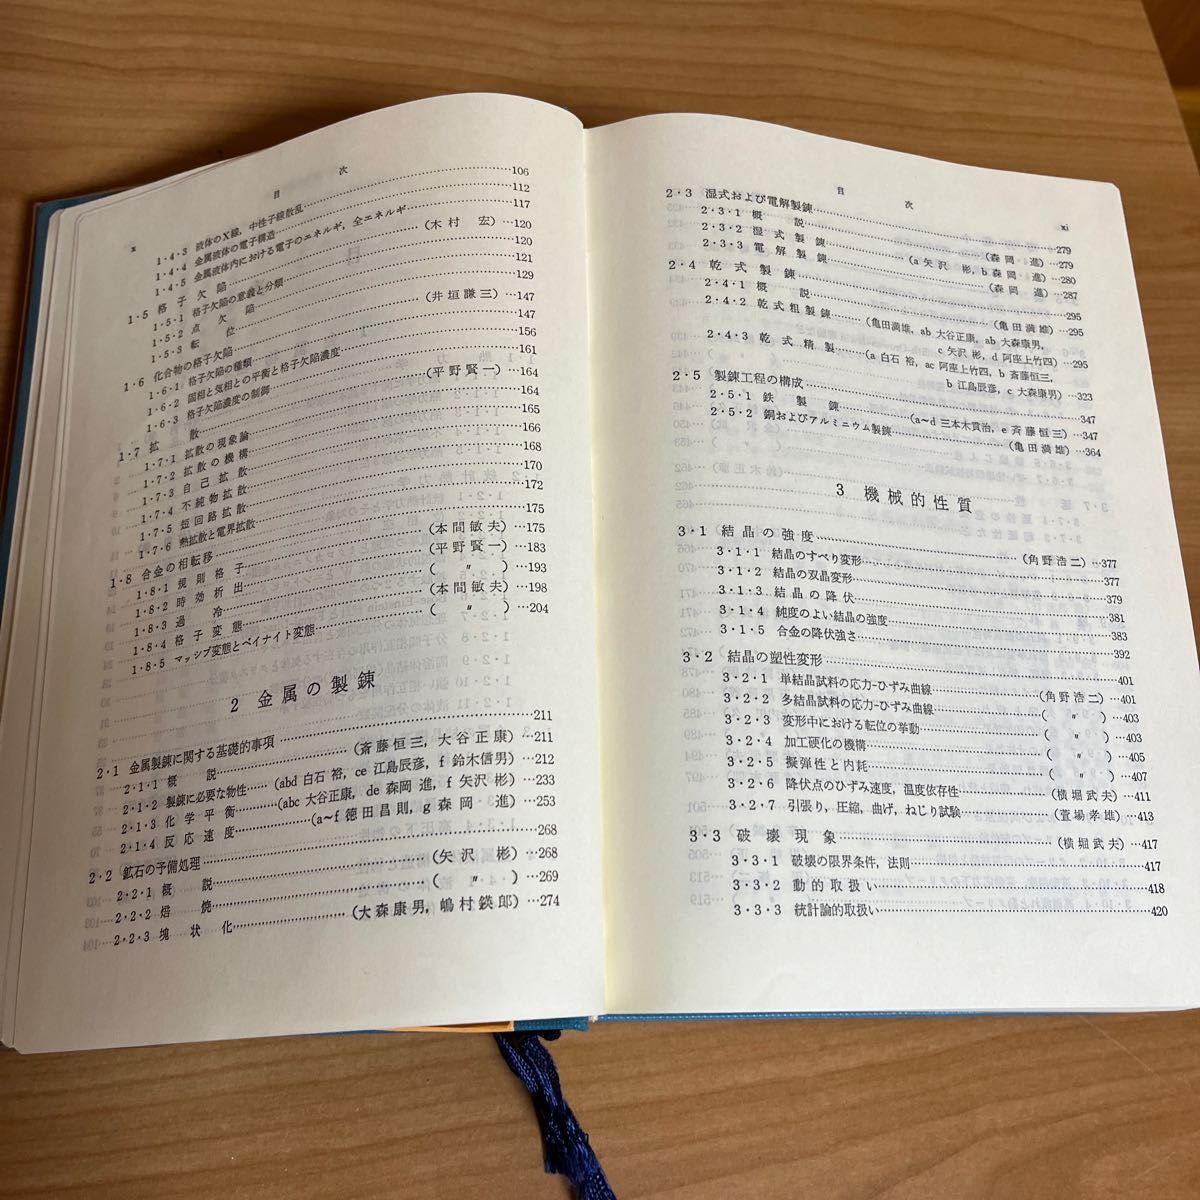 x
目 次
1・4・3 液体のX線，中性子線散乱……106
1・4・4 金属液体の電子構造……112
1・4・5 金属液体内における電子のエネルギ，全エネルギ……117
1・5 格子欠陥……(木村 宏)…120
1・5・1 格子欠陥の意義と分類……120
1・5・2 点欠陥……121
1・5・3 転位……129
1・6 化合物の格子欠陥……(井垣謙三)…147
1・6・1 格子欠陥の種類……147
1・6・2 固相と気相との平衡と格子欠陥濃度……156
1・6・3 格子欠陥濃度の制御……161
1・7 拡散……(平野賢一)…164
1・7・1 拡散の現象論……164
1・7・2 拡散の機構……165
1・7・3 自己拡散……166
1・7・4 不純物拡散……168
1・7・5 短回路拡散……170
1・7・6 熱拡散と電界拡散……172
1・8 合金の相転移……175
1・8・1 規則格子……(本間敏夫)…175
1・8・2 時効析出……(平野賢一)…183
1・8・3 過冷……( 〃 )…193
1・8・4 格子変態……(本間敏夫)…198
1・8・5 マッシブ変態とベイナイト変態……( 〃 )…204
2 金属の製錬
2・1 金属製錬に関する基礎的事項……211
2・1・1 概説……(斎藤恒三，大谷正康)…211
2・1・2 製錬に必要な物性……(abd 白石 裕, ce 江島辰彦, f 鈴木信男)…212
2・1・3 化学平衡……(abc 大谷正康, de 森岡 進, f 矢沢 彬)…233
2・1・4 反応速度……(a~f 徳田昌則, g 森岡 進)…253
2・2 鉱石の予備処理……268
2・2・1 概説……(矢沢 彬)…268
2・2・2 焙焼……( 〃 )…269
2・2・3 塊状化……(大森康男，嶋村鉄郎)…274
目 次
xi
2・3 湿式および電解製錬……279
2・3・1 概説……(森岡 進)…279
2・3・2 湿式製錬……(a 矢沢 彬, b 森岡 進)…280
2・3・3 電解製錬……(森岡 進)…287
2・4 乾式製錬……295
2・4・1 概説……(亀田満雄)…295
2・4・2 乾式粗製錬……(亀田満雄, ab 大谷正康, ab 大森康男,
c 矢沢 彬, d 阿座上竹四)…295
2・4・3 乾式精製……(a 白石 裕, ac 阿座上竹四, b 斎藤恒三,
b 江島辰彦, c 大森康男)…323
2・5 製錬工程の構成……347
2・5・1 鉄製錬……(a~d 三本木貢治, e 斉藤恒三)…347
2・5・2 銅およびアルミニウム製錬……(亀田満雄)…364
3 機械的性質
3・1 結晶の強度……(角野浩二)…377
3・1・1 結晶のすべり変形……377
3・1・2 結晶の双晶変形……379
3・1・3 結晶の降伏……381
3・1・4 純度のよい結晶の強度……383
3・1・5 合金の降伏強さ……392
3・2 結晶の塑性変形……401
3・2・1 単結晶試料の応力-ひずみ曲線……(角野浩二)…401
3・2・2 多結晶試料の応力-ひずみ曲線……( 〃 )…403
3・2・3 変形中における転位の挙動……( 〃 )…403
3・2・4 加工硬化の機構……( 〃 )…405
3・2・5 擬弾性と内耗……( 〃 )…407
3・2・6 降伏点のひずみ速度，温度依存性……(横堀武夫)…411
3・2・7 引張り，圧縮，曲げ，ねじり試験……(萱場孝雄)…413
3・3 破壊現象……(横堀武夫)…417
3・3・1 破壊の限界条件，法則……417
3・3・2 動的取扱い……418
3・3・3 統計論的取扱い……420